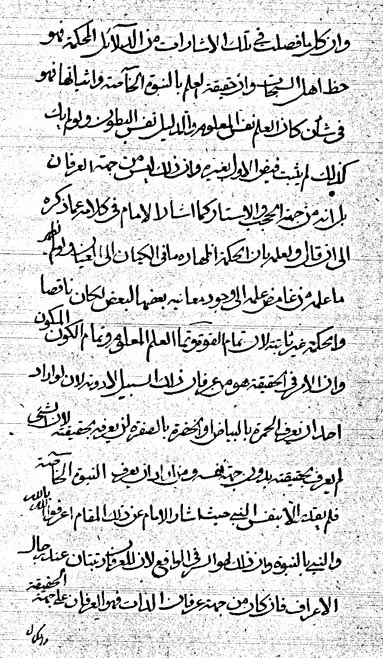 وان كل ما فصلت في تلك الاشارات من الدلائل المحكمة فهو
حظ اهل السبحات وان حقيقة العلم بالنبوة الخاصة واثباتها فهو
في شأن كان العلم نفس المعلوم والدليل نفس المدلول ولو لم يك
كذلك لم يثبت فيض وان ذلك ليس من جهة العرفان
بل انه من جهة الاستار كما اشار الامام في كلامه عما ذكره
الى ان قال ولعله بان الحكمة اظهار ما في الكيان الى العيان ولو لم
ما علمه من غامض علمه الى وجود معاينة بعضها لبعض لكان ناقصا
والحكمة غير ثابتة لان تمام القوة تمام العلم المعلوم وتمام الكون المكون
وان الامر في الحقيقة هو معرفان ذلك السبيل لا دونه لان لو اراد
احد ان يعرف الحمرة بالبياض او الخضرة بالصفرة لن يعرفه بحقيقته لان الشيء
لم يعرف بحقيقته بدون جهة نفسه ومن اراد ان يعرف النبوة الخاصة
فلم يمكنه الا بنفس النبي حيث اشار الامام عن ذلك المقام اعرفوا الله بالله
والنبي بالنبوة وان ذلك هو السر في الواقع لان للعرفان رتبتان عند رجال
الاعراف فان كان من جهة عرفان الذات فهو العرفان على جهة الحقيقة